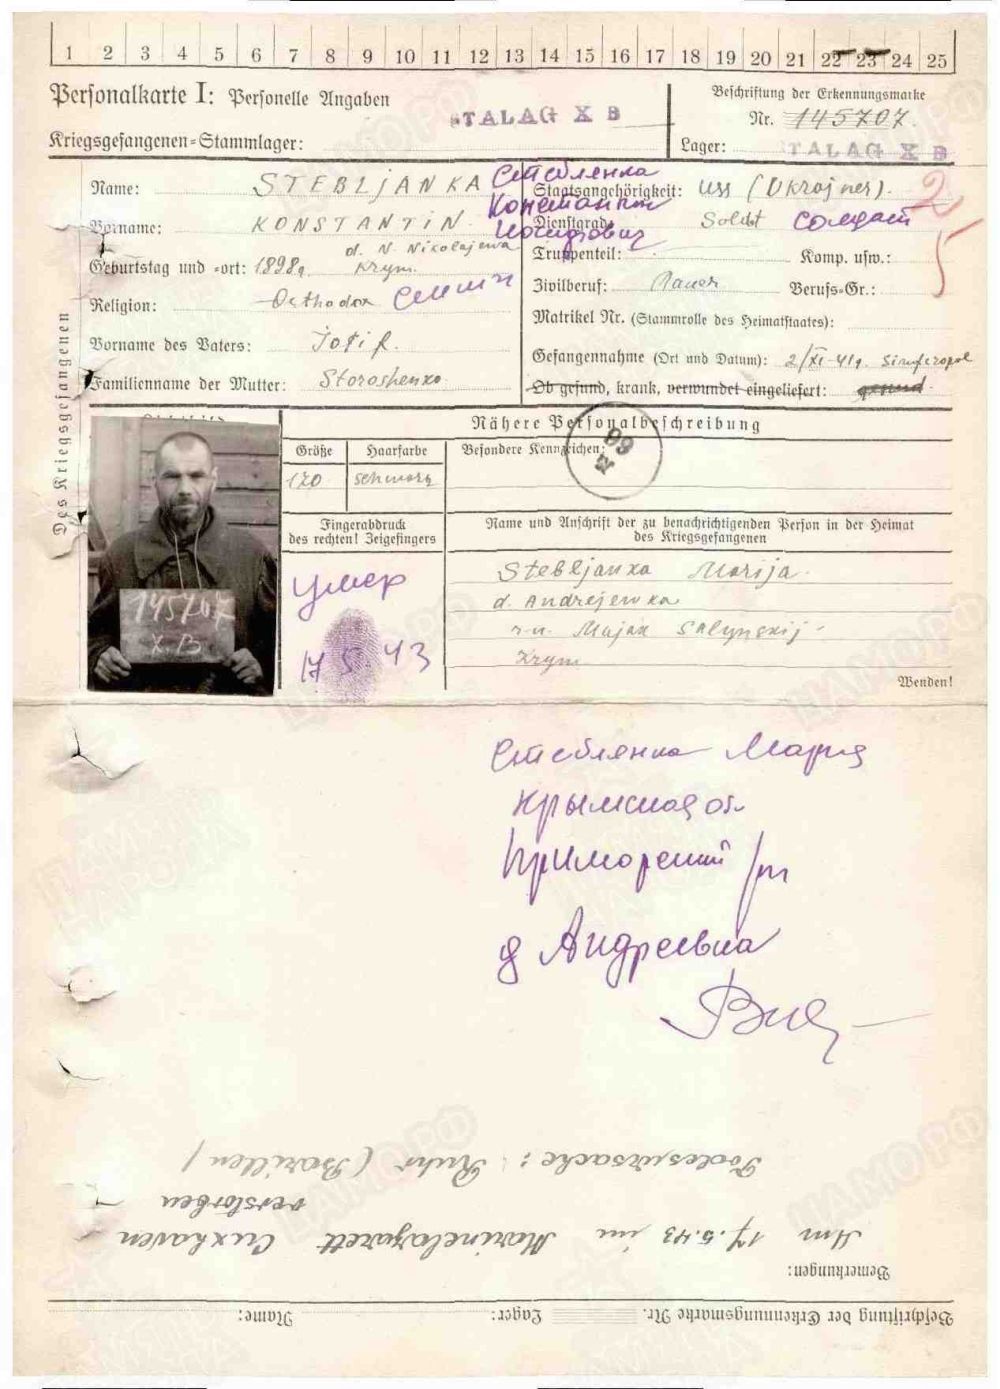 1 2 3 4 5 6 7 8 9 10 11 12 13 14 15 16 17 18 19 20 21 22 23 24 25
Personalkarte I: Personelle Angaben
Kriegsgefangenen-Stammlager: STALAG X B
Beschriftung der Erkennungsmarke
Nr. 145707.
Lager: STALAG X B
Des Kriegsgefangenen
Name: STEBLJANKA Стеблянка
Vorname: KONSTANTIN Константин
Иосифович
Geburtstag und -ort: 1898g. d. N. Nikolajewa
Krym.
Religion: Orthodox
Vorname des Vaters: Josif.
Familienname der Mutter: Storoshenko
Staatsangehörigkeit: USS (Ukrajner).
Dienstgrad: Soldat Солдат
Truppenteil: Komp. usw.:
Zivilberuf: Bauer Berufs-Gr.:
Matrikel Nr. (Stammrolle des Heimatstaates):
Gefangennahme (Ort und Datum): 2/XI-41g. Simferopol
Ob gesund, krank, verwundet eingeliefert: gesund
25
Nähere Personalbeschreibung
Größe Haarfarbe Besondere Kennzeichen:
170 schwarz
Fingerabdruck
des rechten! Zeigefingers
Name und Anschrift der zu benachrichtigenden Person in der Heimat
des Kriegsgefangenen
умер
17.5.43
145707
X.B.
Stebljanka Marija.
d. Andrejewka
r-n. Majak Salynskij
Krym
Wenden!
Стеблянка Мария
Крымская об.
Приморский р/н
д Андреевка
Am 17.5.43 im Marinelazarett Cuxhaven
verstorben
Todesursache: Ruhr (Bazillen)
Bemerkungen:
Beschriftung der Erkennungsmarke Nr. Lager: Name: